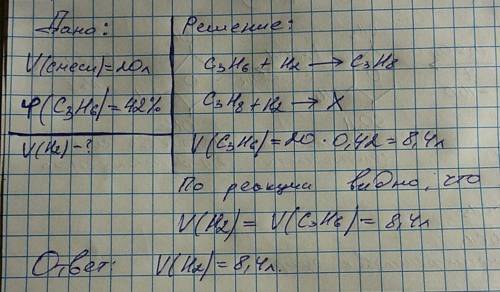 Дано:
V(смеси)=20л
φ(C3H6)=42%
V(H2)-?
Решение:
C3H6 + H2 → C3H8
C3H8+H2 → X
V(C3H6)=20·0,42=8,4л
По реакции видно, что
V(H2)= V(C3H6)= 8,4л
Ответ: V(H2)=8,4л.